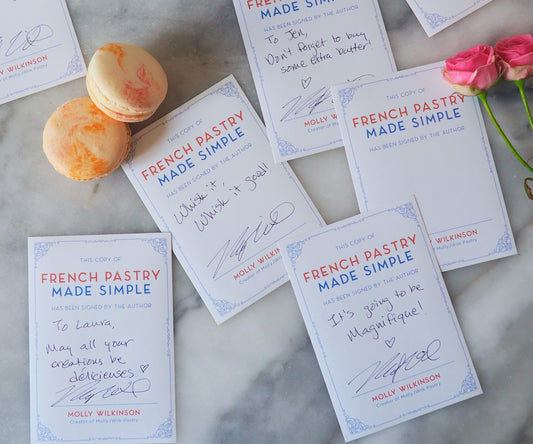 MOLLY WILKINSON
Creator of Molly J Wilk Pastry
MADE SIMPLE
HAS BEEN SIGNED BY THE AUTHOR
To Jen,
Don't forget to buy
some extra butter!
♡
MOLLY WILKINSON
Creator of Molly J Wilk Pastry
THIS COPY OF
FRENCH PASTRY
MADE SIMPLE
HAS BEEN SIGNED BY THE AUTHOR
Whisk it.
Whisk it good!
MOLLY WILKINSON
Creator of MollyJWilk Pastry
THIS COPY OF
FRENCH PASTRY
MADE SIMPLE
HAS BEEN SIGNED BY THE AUTHOR
MOLLY WILKINSON
Creator of MollyJWilk Pastry
THIS COPY OF
FRENCH PASTRY
MADE SIMPLE
HAS BEEN SIGNED BY THE AUTHOR
To Laura,
May all your
creations be
délicieuses ♡
MOLLY WILKINSON
Creator of MollyJWilk Pastry
THIS COPY OF
FRENCH PASTRY
MADE SIMPLE
HAS BEEN SIGNED BY THE AUTHOR
It's going to be
Magnifique!
♡
MOLLY WILKINSON
Creator of MollyJWilk Pastry